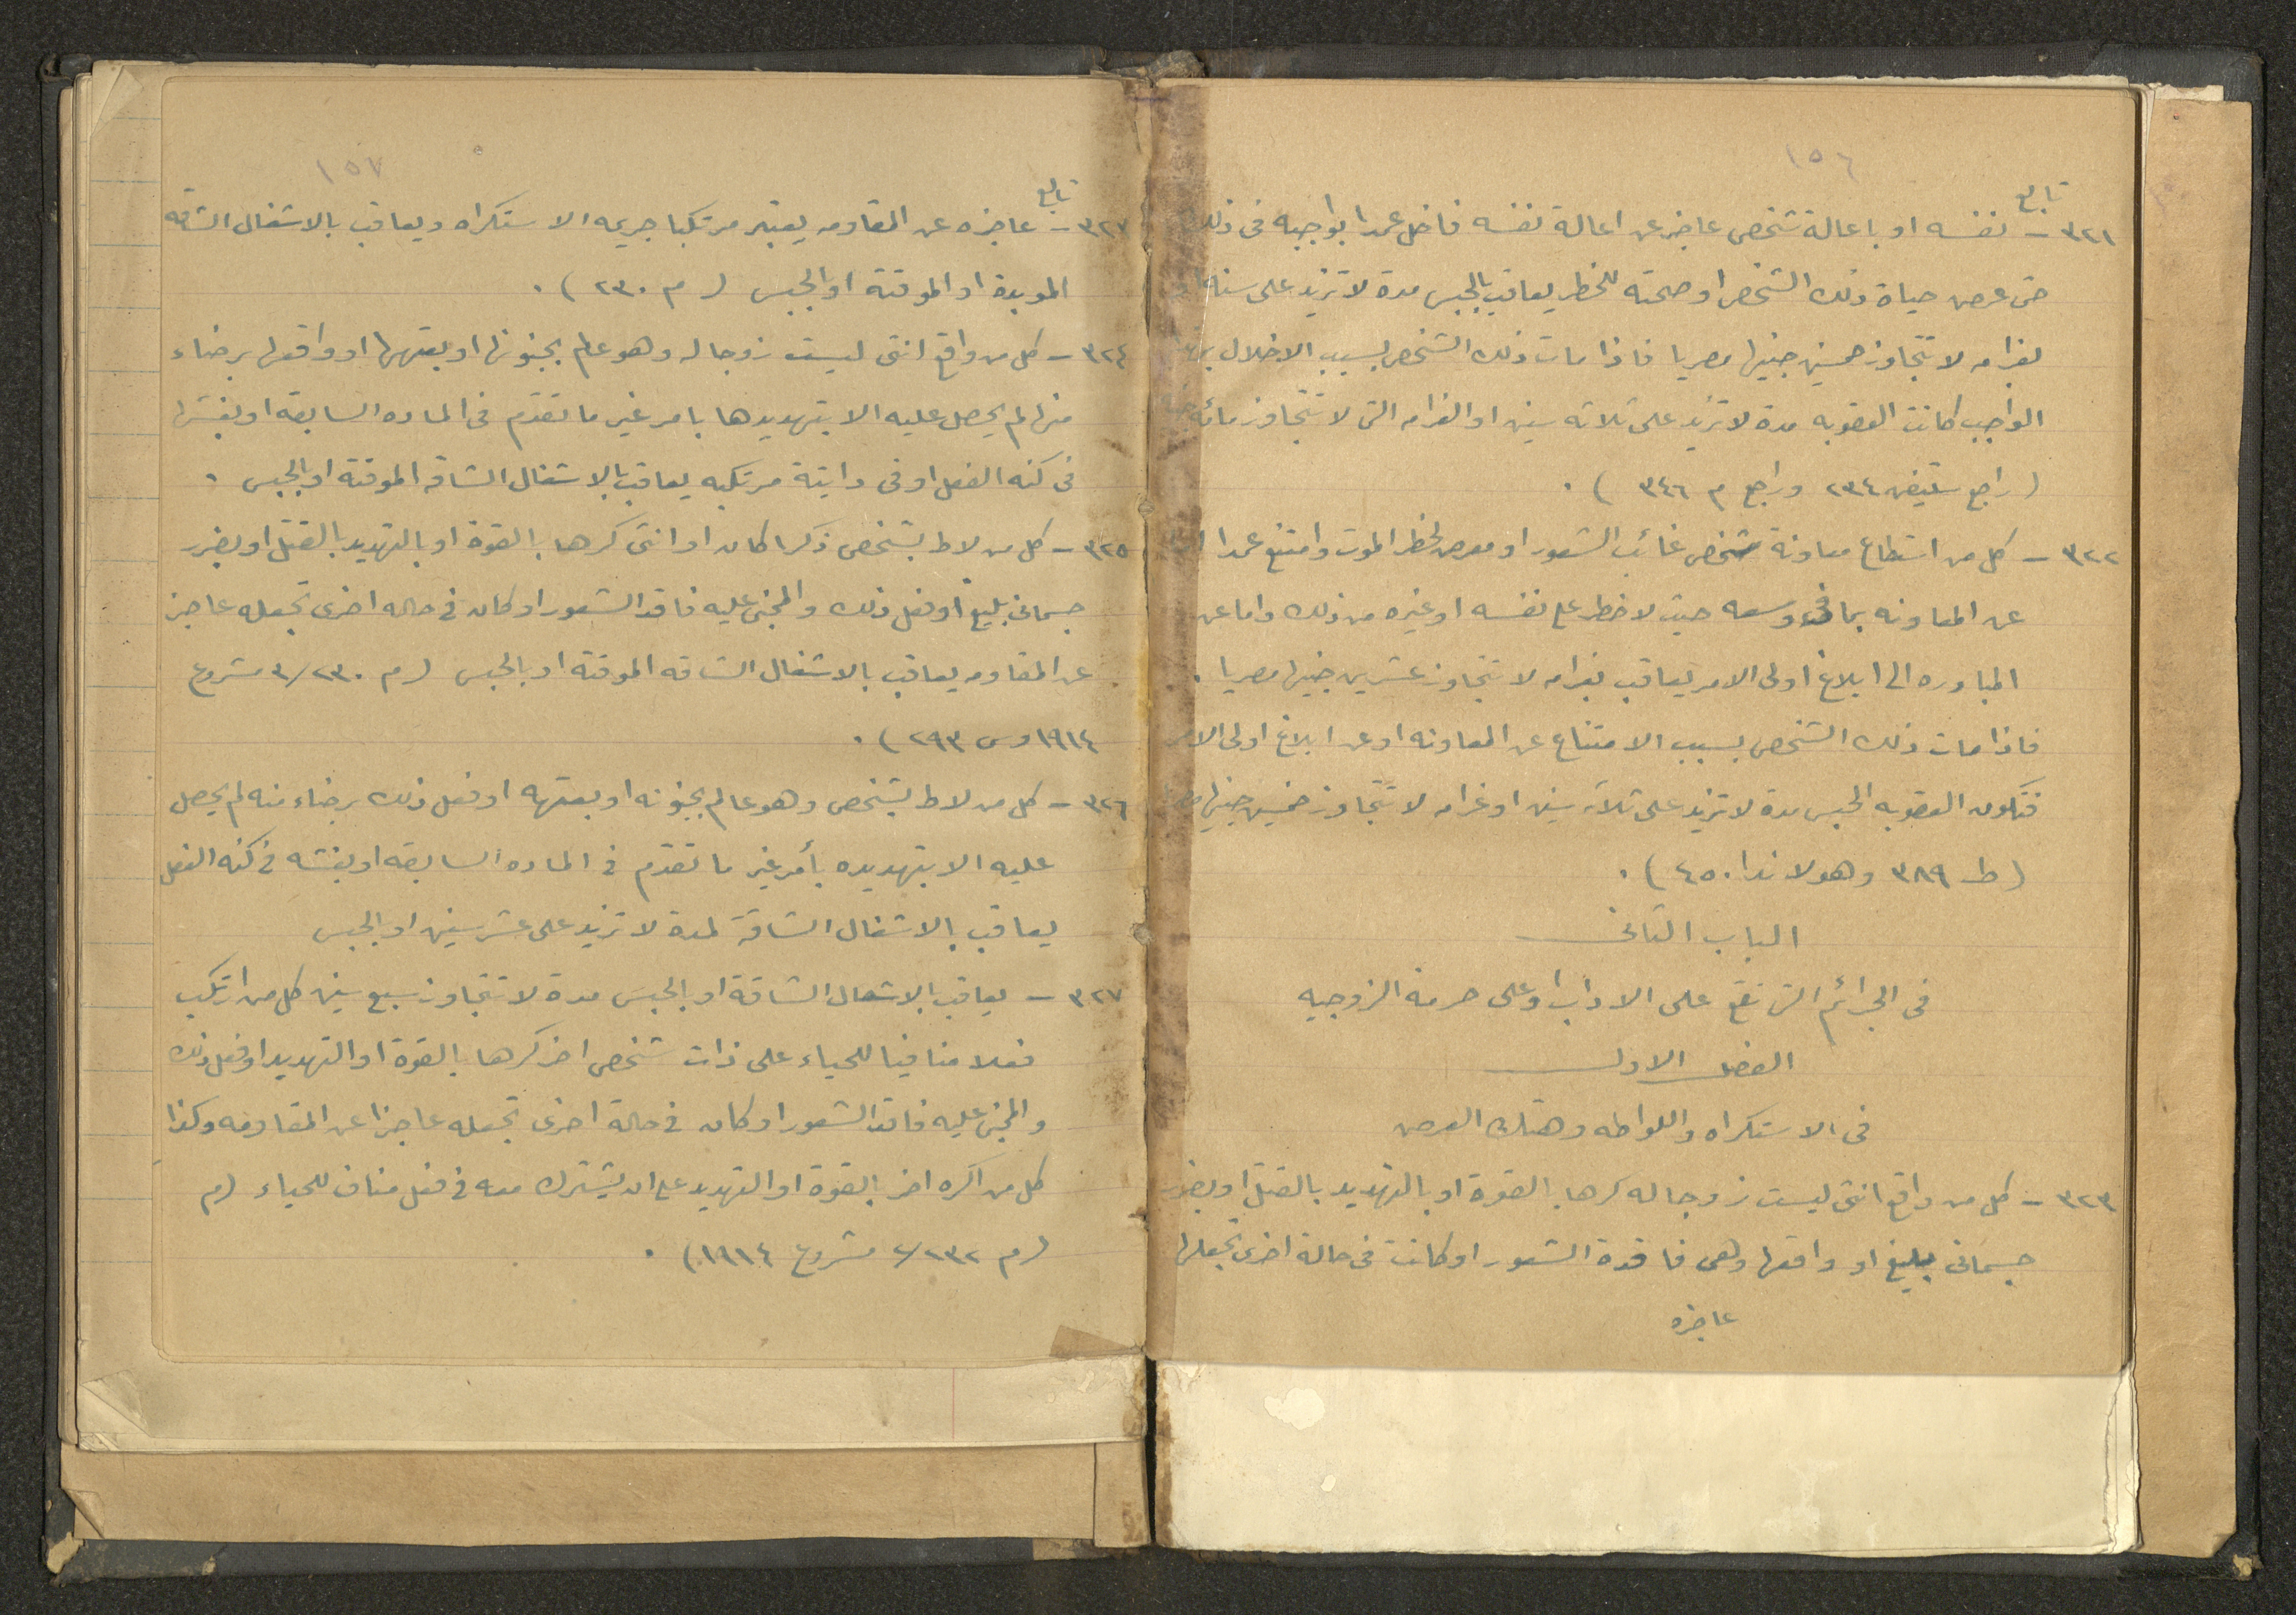 ١٥٦
تابع
٣٢١ - نفسه او باعالة شخص عاجز عن اعالة نفسه فاخل عمدا بواجبه فى ذلك
حتى عرض حياة ذلك الشخص او صحته للخطر يعاقب بالحبس مدة لا تزيد على سنة
بغرامه لا تتجاوز خمسين جنيها مصريا فاذا مات ذلك الشخص بسبب الاخلال
الواجب كانت العقوبه مدة لا تزيد على ثلاثه سنين او الغرامه التى لا تتجاوز مائه
(راجع ٢٣٤ وراجع م ٣٤٦) .
٣٢٢ - كل من استطاع معاونة شخص غائب الشعور او معرض لخطر الموت وامتنع عمدا
عن المعاونه بما فى وسعه حيث لا خطر على نفسه او غيره من ذلك واما عن
المبادره الى ابلاغ اولى الامر يعاقب بغرامه لا تتجاوز عشرين جنيها مصريا .
فاذا مات ذلك الشخص بسبب الامتناع عن المعاونه او عن ابلاغ اولى الامر
فتكون العقوبه الحبس مدة لا تزيد على ثلاثه سنين او غرامه لا تتجاوز خمسين جنيها
(ط ٣٨٩ وهولاندا ٤٥٠) .
الباب الثانى
فى الجرائم التى تقع على الاداب وعلى حرمة الزوجيه
الفصل الاول
فى الاستكراه واللواطه وهتك العرض
٣٢٣ - كل من واقع انثى ليست زوجا له كرها بالقوة او بالتهديد بالقتل او بضرر
جسمانى بليغ او واقعها وهى فاقدة الشعور او كانت فى حالة اخرى تجعلها
عاجزه
١٥٧
تابع
٣٢٧ - عاجزه عن المقاومه يعتبر مرتكبا جريمه الاستكراه ويعاقب بالاشغال الشاقه
الموبدة او الموقتة او الحبس (م ٢٣٠) .
٣٢٤ - كل من واقع انثى ليست زوجا له وهو عالم بجنونها او بعتهها او واقعها برضاء
منها لم يحصل عليه الا بتهديدها بامر غير ما تقدم فى الماده السابقه او بغشها
فى كنه الفعل او فى ذاتية مرتكبه يعاقب بالاشغال الشاقه الموقتة او بالحبس .
٣٢٥ - كل من لاط بشخص ذكرا كان او انثى كرها بالقوة او بالتهديد بالقتل او بضرر
جسمانى بليغ او فعل ذلك والمجنى عليه فاقد الشعور او كان فى حاله اخرى تجعله عاجز
عن المقاومه يعاقب بالاشغال الشاقه الموقتة او بالحبس (م ٢٣٠/٣ مشروع
١٩١٤ وس ٢٩٣) .
٣٢٦ - كل من لاط بشخص وهو عالم بجنونه او بعتهه او فعل ذلك برضاء منه لم يحصل
عليه الا بتهديده بأمر غير ما تقدم فى الماده السابقه او بغشه فى كنه الفعل
يعاقب بالاشغال الشاقه لمدة لا تزيد على عشر سنين او الحبس
٣٢٧ - يعاقب بالاشغال الشاقة او بالحبس مدة لا تتجاوز سبع سنين كل من ارتكب
فعلا منافيا للحياء على ذات شخص اخر كرها بالقوة او التهديد او فعل ذلك
والمجنى عليه فاقد الشعور او كان فى حالة اخرى تجعله عاجزا عن المقاومه وكذا
كل من اكره اخر بالقوة او التهديد على ان يشترك معه فى فعل مناف للحياء (م
(م ٢٣٢/٢ مشروع ١٩١٤) .